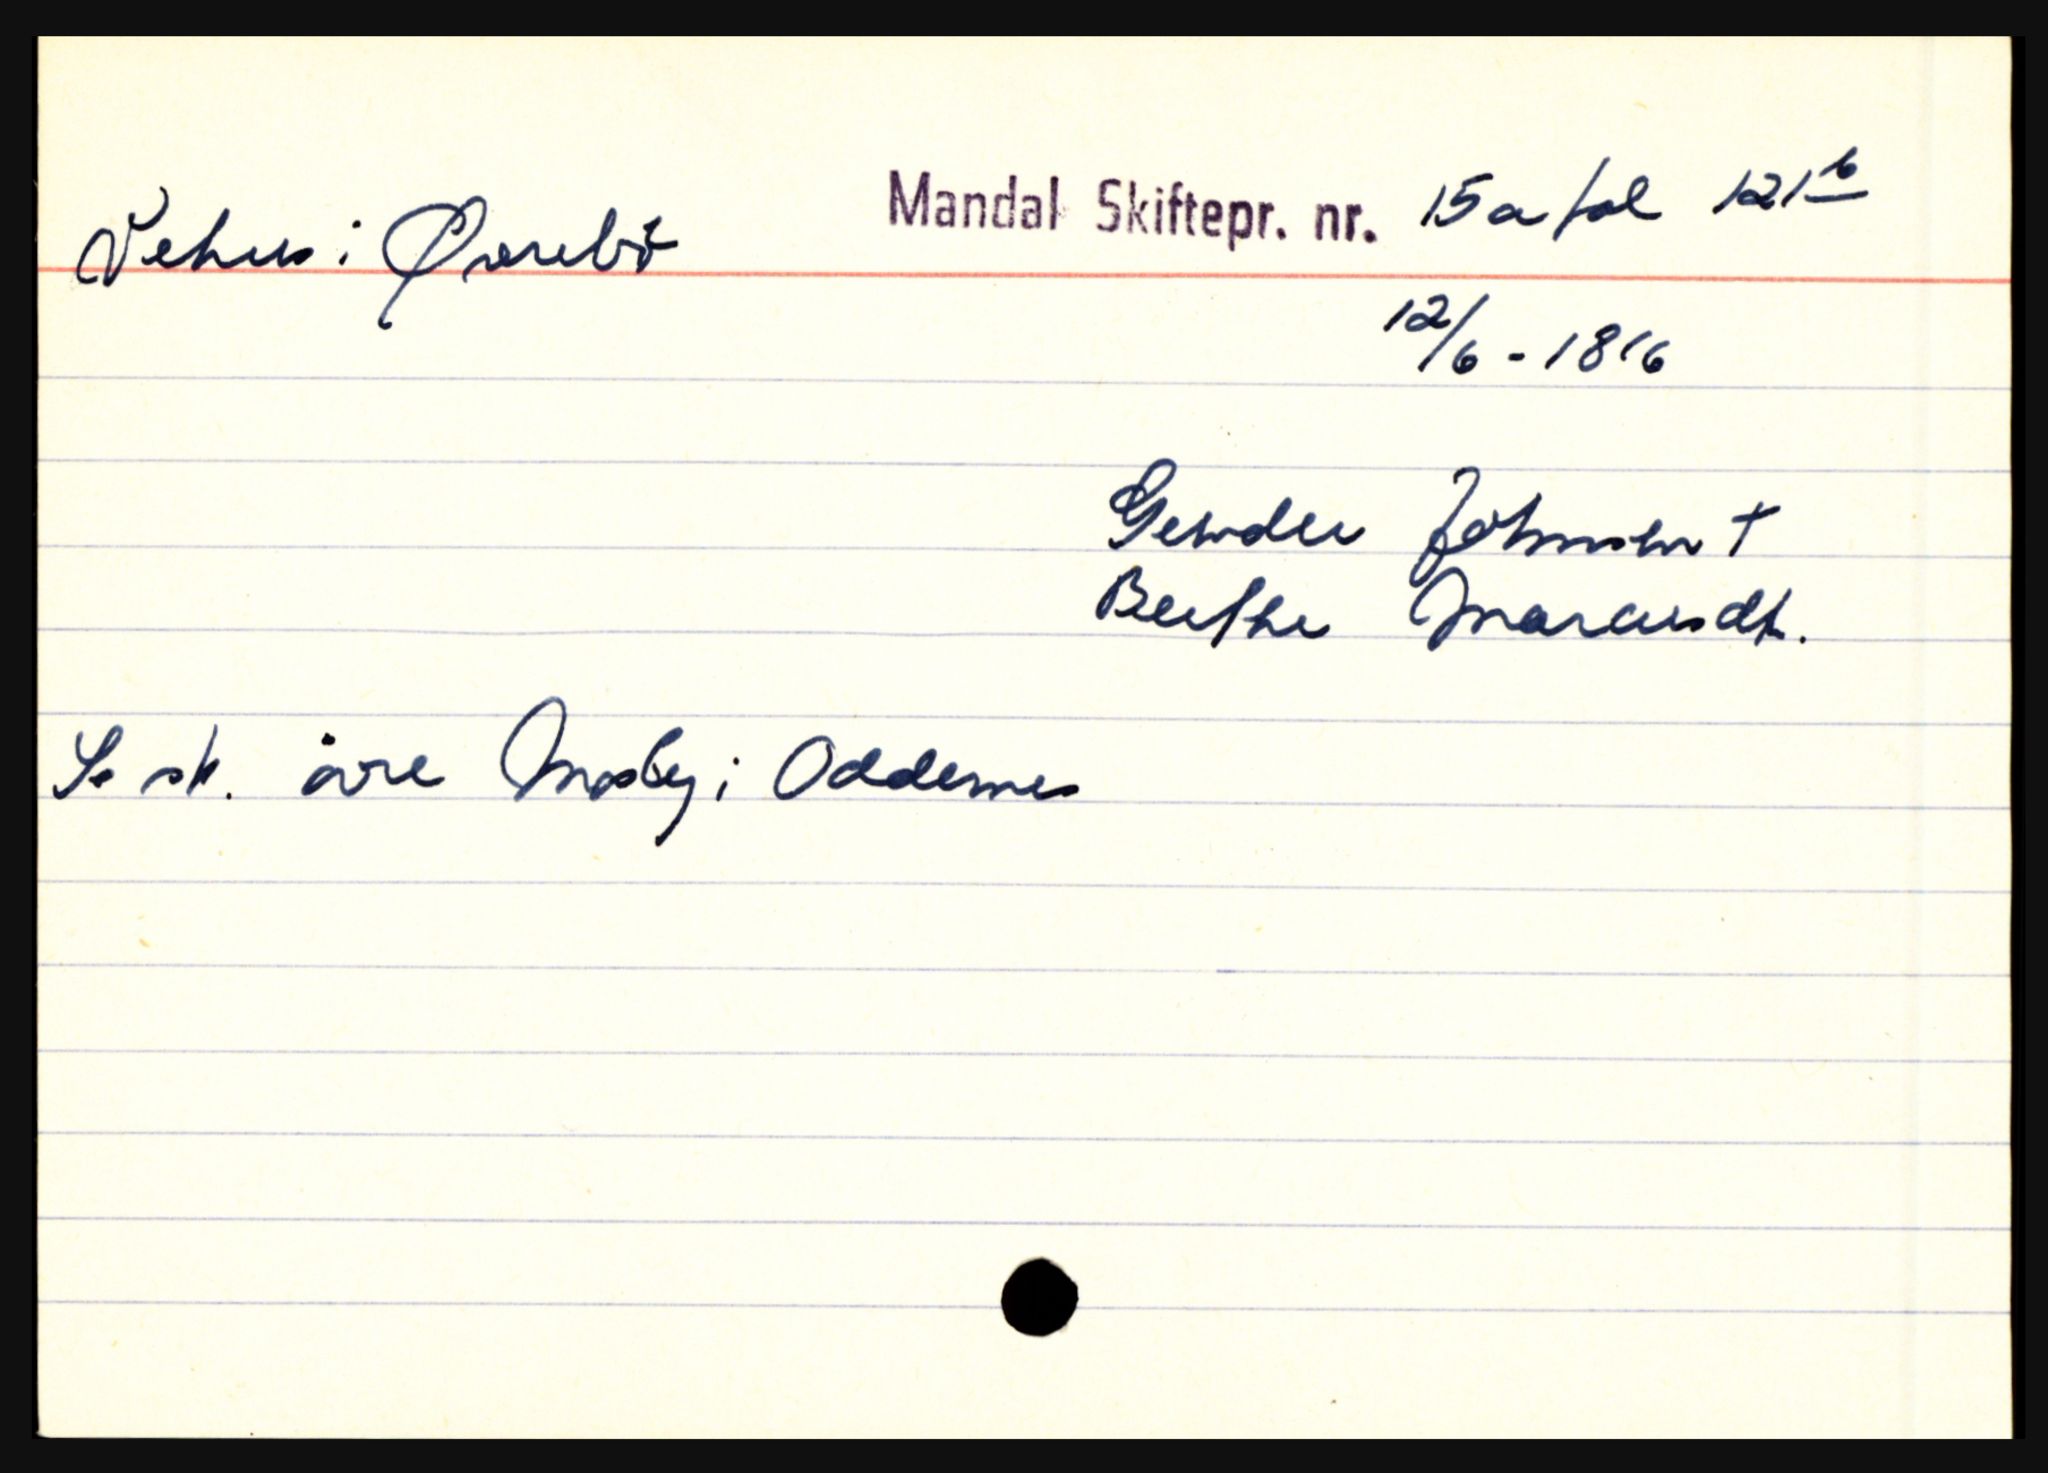 Vehus i Øvrebö Mandal Skiftepr. nr. 15a fol 121b
12/6 - 1816
Johnsen +
Berthe Marcusdt.
Se sk. övre Mosby i Oddernes